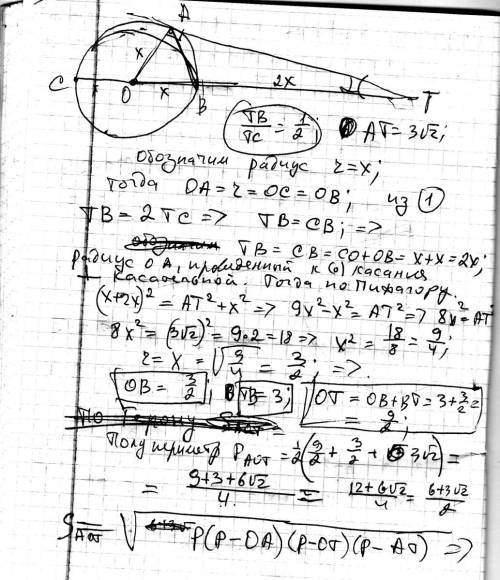 A
x
C
O
x
B
2x
T
TB/TC = 1/2; AT = 3√2;
обозначим радиус r = x;
Тогда OA = r = OC = OB; из ①
TB = 2TC => TB = CB; =>
TB = CB = CO + OB = x + x = 2x;
Радиус OA, проведенный к касания
касательной. Тогда по Пифагору.
(x+2x)² = AT² + x² => 9x² - x² = AT² => 8x² = AT²
8x² = (3√2)² = 9·2 = 18 => x² = 18/8 = 9/4;
r = x = √(9/4) = 3/2; =>.
OB = 3/2; TB = 3; OT = OB + BT = 3 + 3/2 =
= 9/2;
По Герону
Полупериметр P_AOT = 1/2(9/2 + 3/2 + 3√2) =
= (9+3+6√2)/4 = (12+6√2)/4 = (6+3√2)/2
S_AOT = √(P(P-OA)(P-OT)(P-AT)) =>